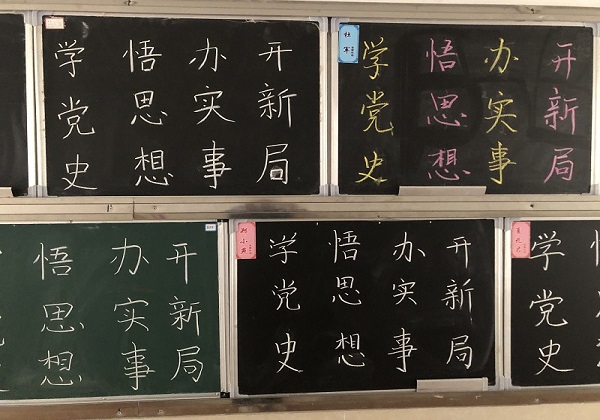 学党史
悟思想
办实事
开新局
学党史
悟思想
办实事
开新局
悟思想
办实事
开新局
学党史
悟思想
办实事
开新局
学党史